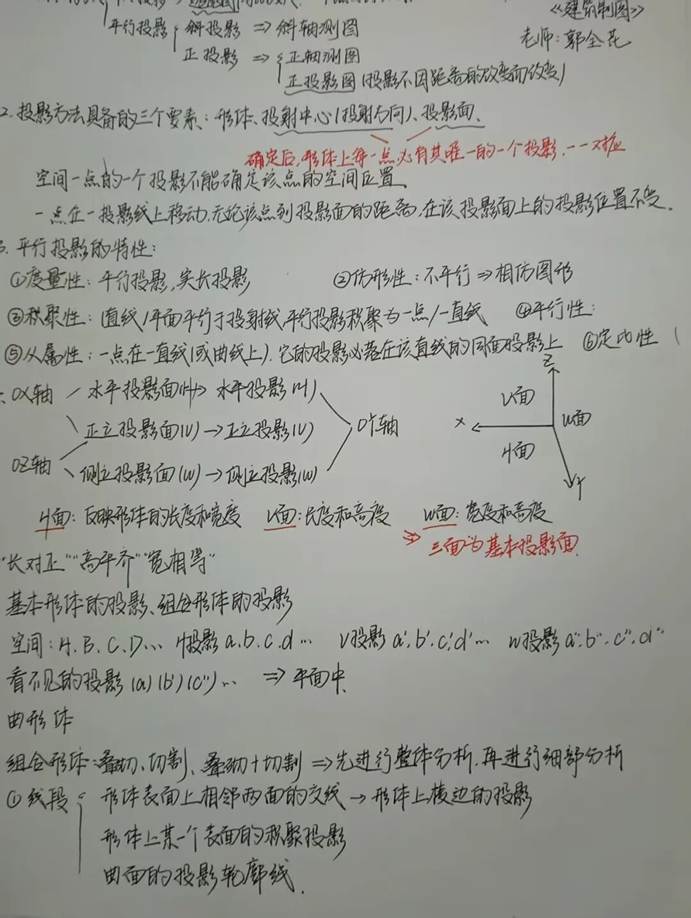 《建筑制图》
平行投影 斜投影 ⇒ 斜轴测图
老师：郭全花
正投影 ⇒ 正轴测图
正投影图(投影不因距离的改变而改变)
2. 投影方法具备的三个要素：形体、投射中心(投射方向)、投影面.
确定后，形体上每一点必有其唯一的一个投影. 一一对应
空间一点的一个投影不能确定该点的空间位置
一点在一投影线上移动,无论该点到投影面的距离,在该投影面上的投影位置不变.
3. 平行投影的特性：
①度量性：平行投影,实长投影 ②仿形性：不平行⇒相仿图形
③积聚性：(直线/平面平行于投射线,平行投影积聚为一点/一直线 ④平行性：
⑤从属性：一点在一直线(或曲线上).它的投影必落在该直线的同面投影上 ⑥定比性 (
OX轴 水平投影面(H)→ 水平投影(H)
正立投影面(V)→正立投影(V) OY轴
OZ轴
侧立投影面(W)→侧立投影(W)
Z
V面
X W面
H面
Y
H面：反映形体的长度和宽度 V面：长度和高度 W面：宽度和高度
⇒ 三面为基本投影面.
"长对正""高平齐""宽相等"
基本形体的投影、组合形体的投影
空间：A.B.C.D… H投影a.b.c.d… V投影a'.b'.c'.d'… W投影a".b".c".d"
看不见的投影(a)(b')(c")… ⇒ 平面中.
曲形体
组合形体：叠砌、切割、叠砌+切割 ⇒先进行整体分析.再进行细部分析
①线段 形体表面上相邻两面的交线→形体上棱边的投影
形体上某一个表面的积聚投影
曲面的投影轮廓线.